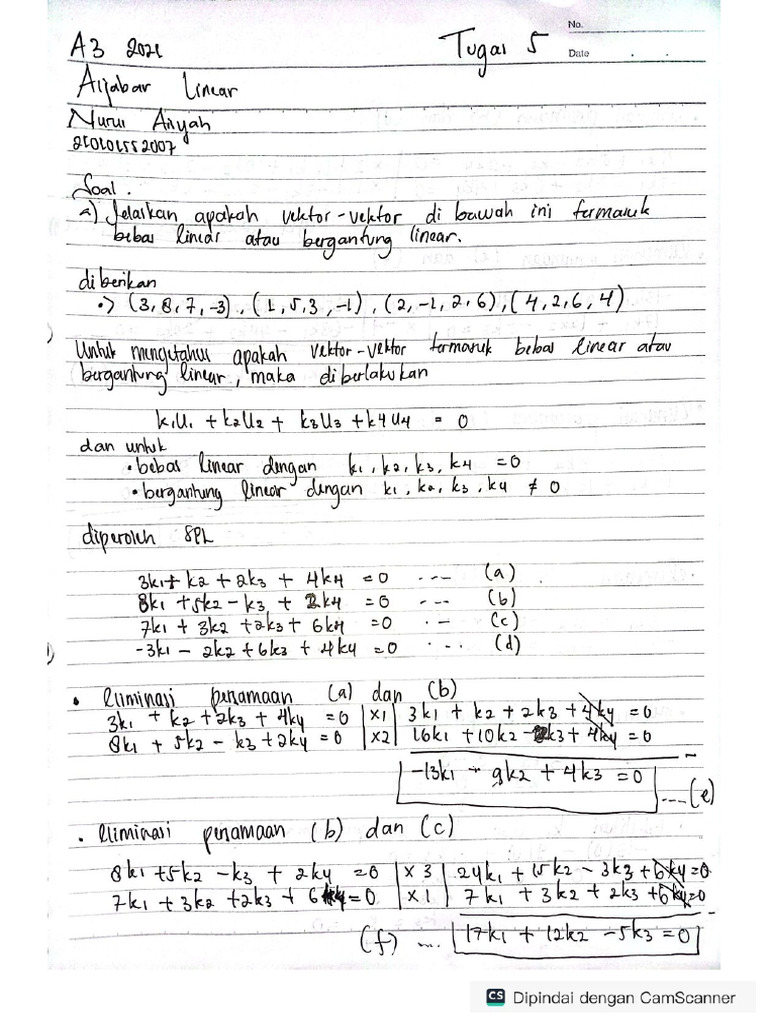 No.
A3 2021
Tugas 5
Date
Aljabar Linear
Nurul Aisyah
Soal.
a) Jelaskan apakah vektor-vektor di bawah ini termasuk
bebas linear atau bergantung linear.
diberikan
•> (3,8,7,-3), (1,5,3,-1), (2,-1,2,6), (4,2,6,4)
Untuk mengetahui apakah vektor-vektor termasuk bebas linear atau
bergantung linear, maka diberlakukan
k1u1 + k2u2 + k3u3 + k4u4 = 0
dan untuk
• bebas linear dengan k1, k2, k3, k4 = 0
• bergantung linear dengan k1, k2, k3, k4 ≠ 0
diperoleh SPL
3k1 + k2 + 2k3 + 4k4 = 0 ... (a)
8k1 + 5k2 - k3 + 2k4 = 0 ... (b)
7k1 + 3k2 + 2k3 + 6k4 = 0 ... (c)
-3k1 - 2k2 + 6k3 + 4k4 = 0 ... (d)
• Eliminasi persamaan (a) dan (b)
3k1 + k2 + 2k3 + 4k4 = 0 | x1 | 3k1 + k2 + 2k3 + 4k4 = 0
8k1 + 5k2 - k3 + 2k4 = 0 | x2 | 16k1 + 10k2 - 2k3 + 4k4 = 0
-
-13k1 - 9k2 + 4k3 = 0 ....(e)
• Eliminasi persamaan (b) dan (c)
8k1 + 5k2 - k3 + 2k4 = 0 | x 3 | 24k1 + 15k2 - 3k3 + 6k4 = 0
7k1 + 3k2 + 2k3 + 6k4 = 0 | x 1 | 7k1 + 3k2 + 2k3 + 6k4 = 0
-
(f) .... 17k1 + 12k2 - 5k3 = 0
CS Dipindai dengan CamScanner